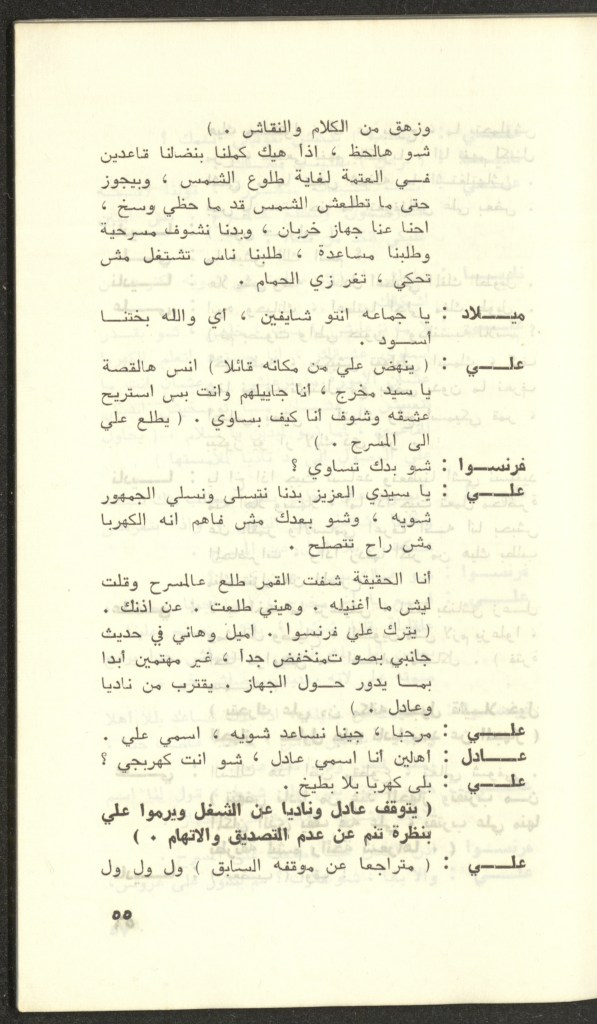 وزهق من الكلام والنقاش . )
شو هالحظ ، اذا هيك كملنا بنضلنا قاعدين
فـي العتمة لغاية طلوع الشمس ، وبيجوز
حتى ما تطلعش الشمس قد ما حظي وسخ ،
احنا عنا جهاز خربان ، وبدنا نشوف مسرحية
وطلبنا مساعدة ، طلبنا ناس تشتغل مش
تحكي ، تغر زي الحمام .
ميــلاد : يا جماعه انتو شايفين ، أي والله بختنـا
أسـود .
علــي : ( ينهض علي من مكانه قائلا ) انس هالقصة
يا سيد مخرج ، أنا جاييلهم وانت بس استريح
عشقه وشوف أنا كيف بساوي . ( يطلع علي
الى المسرح . )
فرنســوا : شو بدك تساوي ؟
علــي : يا سيدي العزيز بدنا نتسلى ونسلي الجمهور
شويه ، وشو بعدك مش فاهم انه الكهربا
مش راح تتصلح .
أنا الحقيقة شفت القمر طلع عالمسرح وقلت
ليش ما أغنيله . وهيني طلعت . عن اذنك .
( يترك علي فرنسوا . اميل وهاني في حديث
جانبي بصو تمنخفض جدا ، غير مهتمين أبدا
بمـا يدور حـول الجهاز . يقترب من ناديا
وعادل . )
علــي : مرحبا ، جينا نساعد شويه ، اسمي علي .
عــادل : أهلين أنا اسمي عادل ، شو انت كهربجي ؟
علــي : بلى كهربا بلا بطيخ .
( يتوقف عادل وناديا عن الشغل ويرموا علي
بنظرة تنم عن عدم التصديق والاتهام . )
علــي : ( متراجعا عن موقفه السابق ) ول ول ول
٥٥